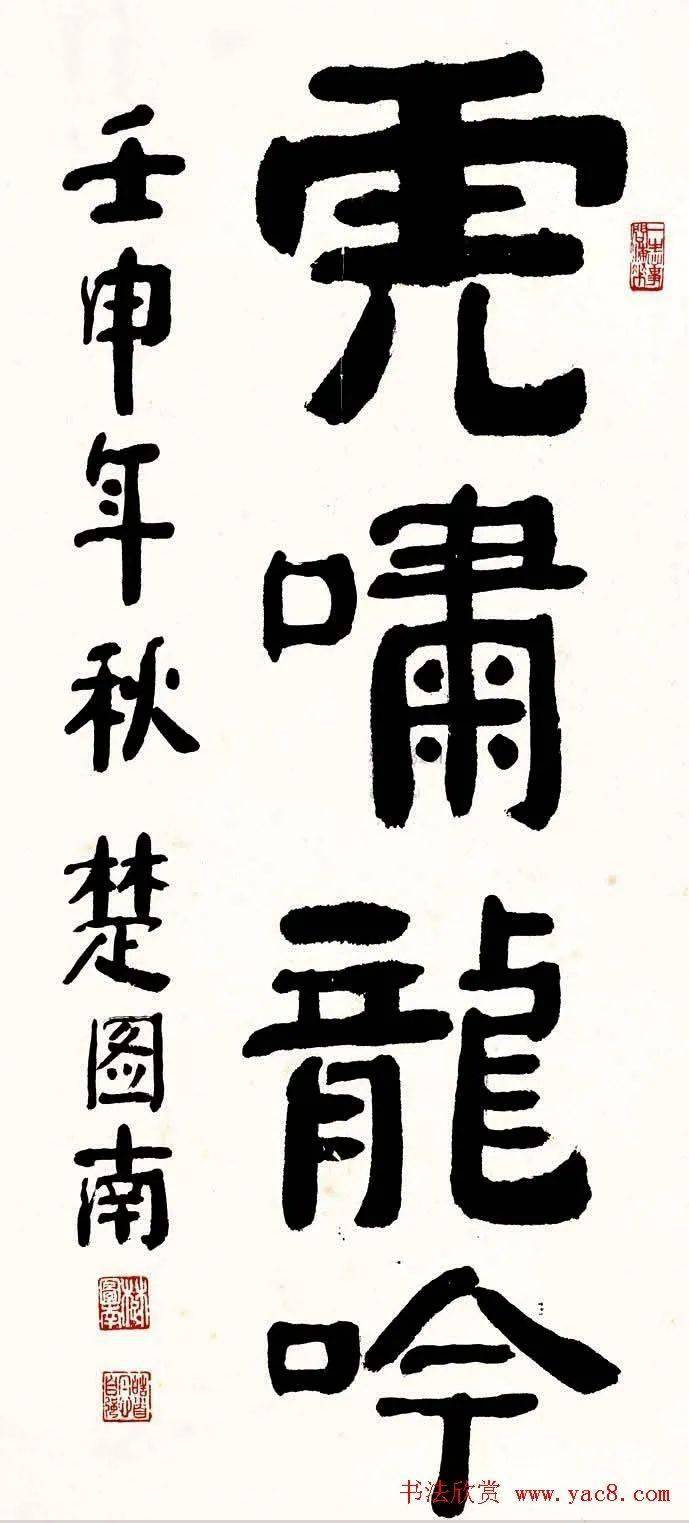 虎啸龍吟
壬申年秋 楚图南
书法欣赏 www.yac8.com